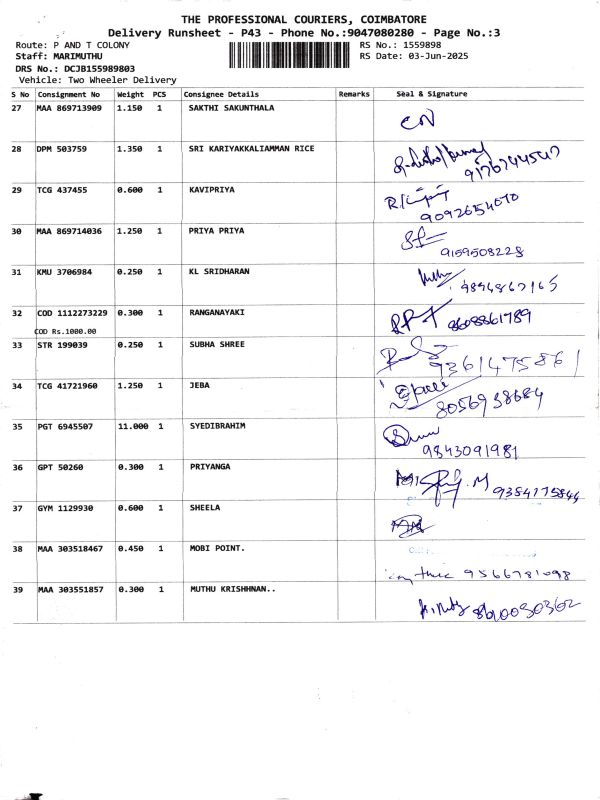 THE PROFESSIONAL COURIERS, COIMBATORE
Delivery Runsheet - P43 - Phone No.:9047080280 - Page No.:3
Route: P AND T COLONY
RS No.: 1559898
Staff: MARIMUTHU
RS Date: 03-Jun-2025
DRS No.: DCJB155989803
Vehicle: Two Wheeler Delivery
S No Consignment No Weight PCS Consignee Details Remarks Seal & Signature
27 MAA 869713909 1.150 1 SAKTHI SAKUNTHALA
28 DPM 503759 1.350 1 SRI KARIYAKKALIAMMAN RICE
9176744547
29 TCG 437455 0.600 1 KAVIPRIYA
9092654070
30 MAA 869714036 1.250 1 PRIYA PRIYA
9159508228
31 KMU 3706984 0.250 1 KL SRIDHARAN
9894867165
32 COD 1112273229 0.300 1 RANGANAYAKI
8608861789
COD Rs.1000.00
33 STR 199039 0.250 1 SUBHA SHREE
9361475861
34 TCG 41721960 1.250 1 JEBA
8056938684
35 PGT 6945507 11.000 1 SYEDIBRAHIM
9843091981
36 GPT 50260 0.300 1 PRIYANGA
9354175844
37 GYM 1129930 0.600 1 SHEELA
38 MAA 303518467 0.450 1 MOBI POINT.
9566781098
39 MAA 303551857 0.300 1 MUTHU KRISHHNAN..
8610030302